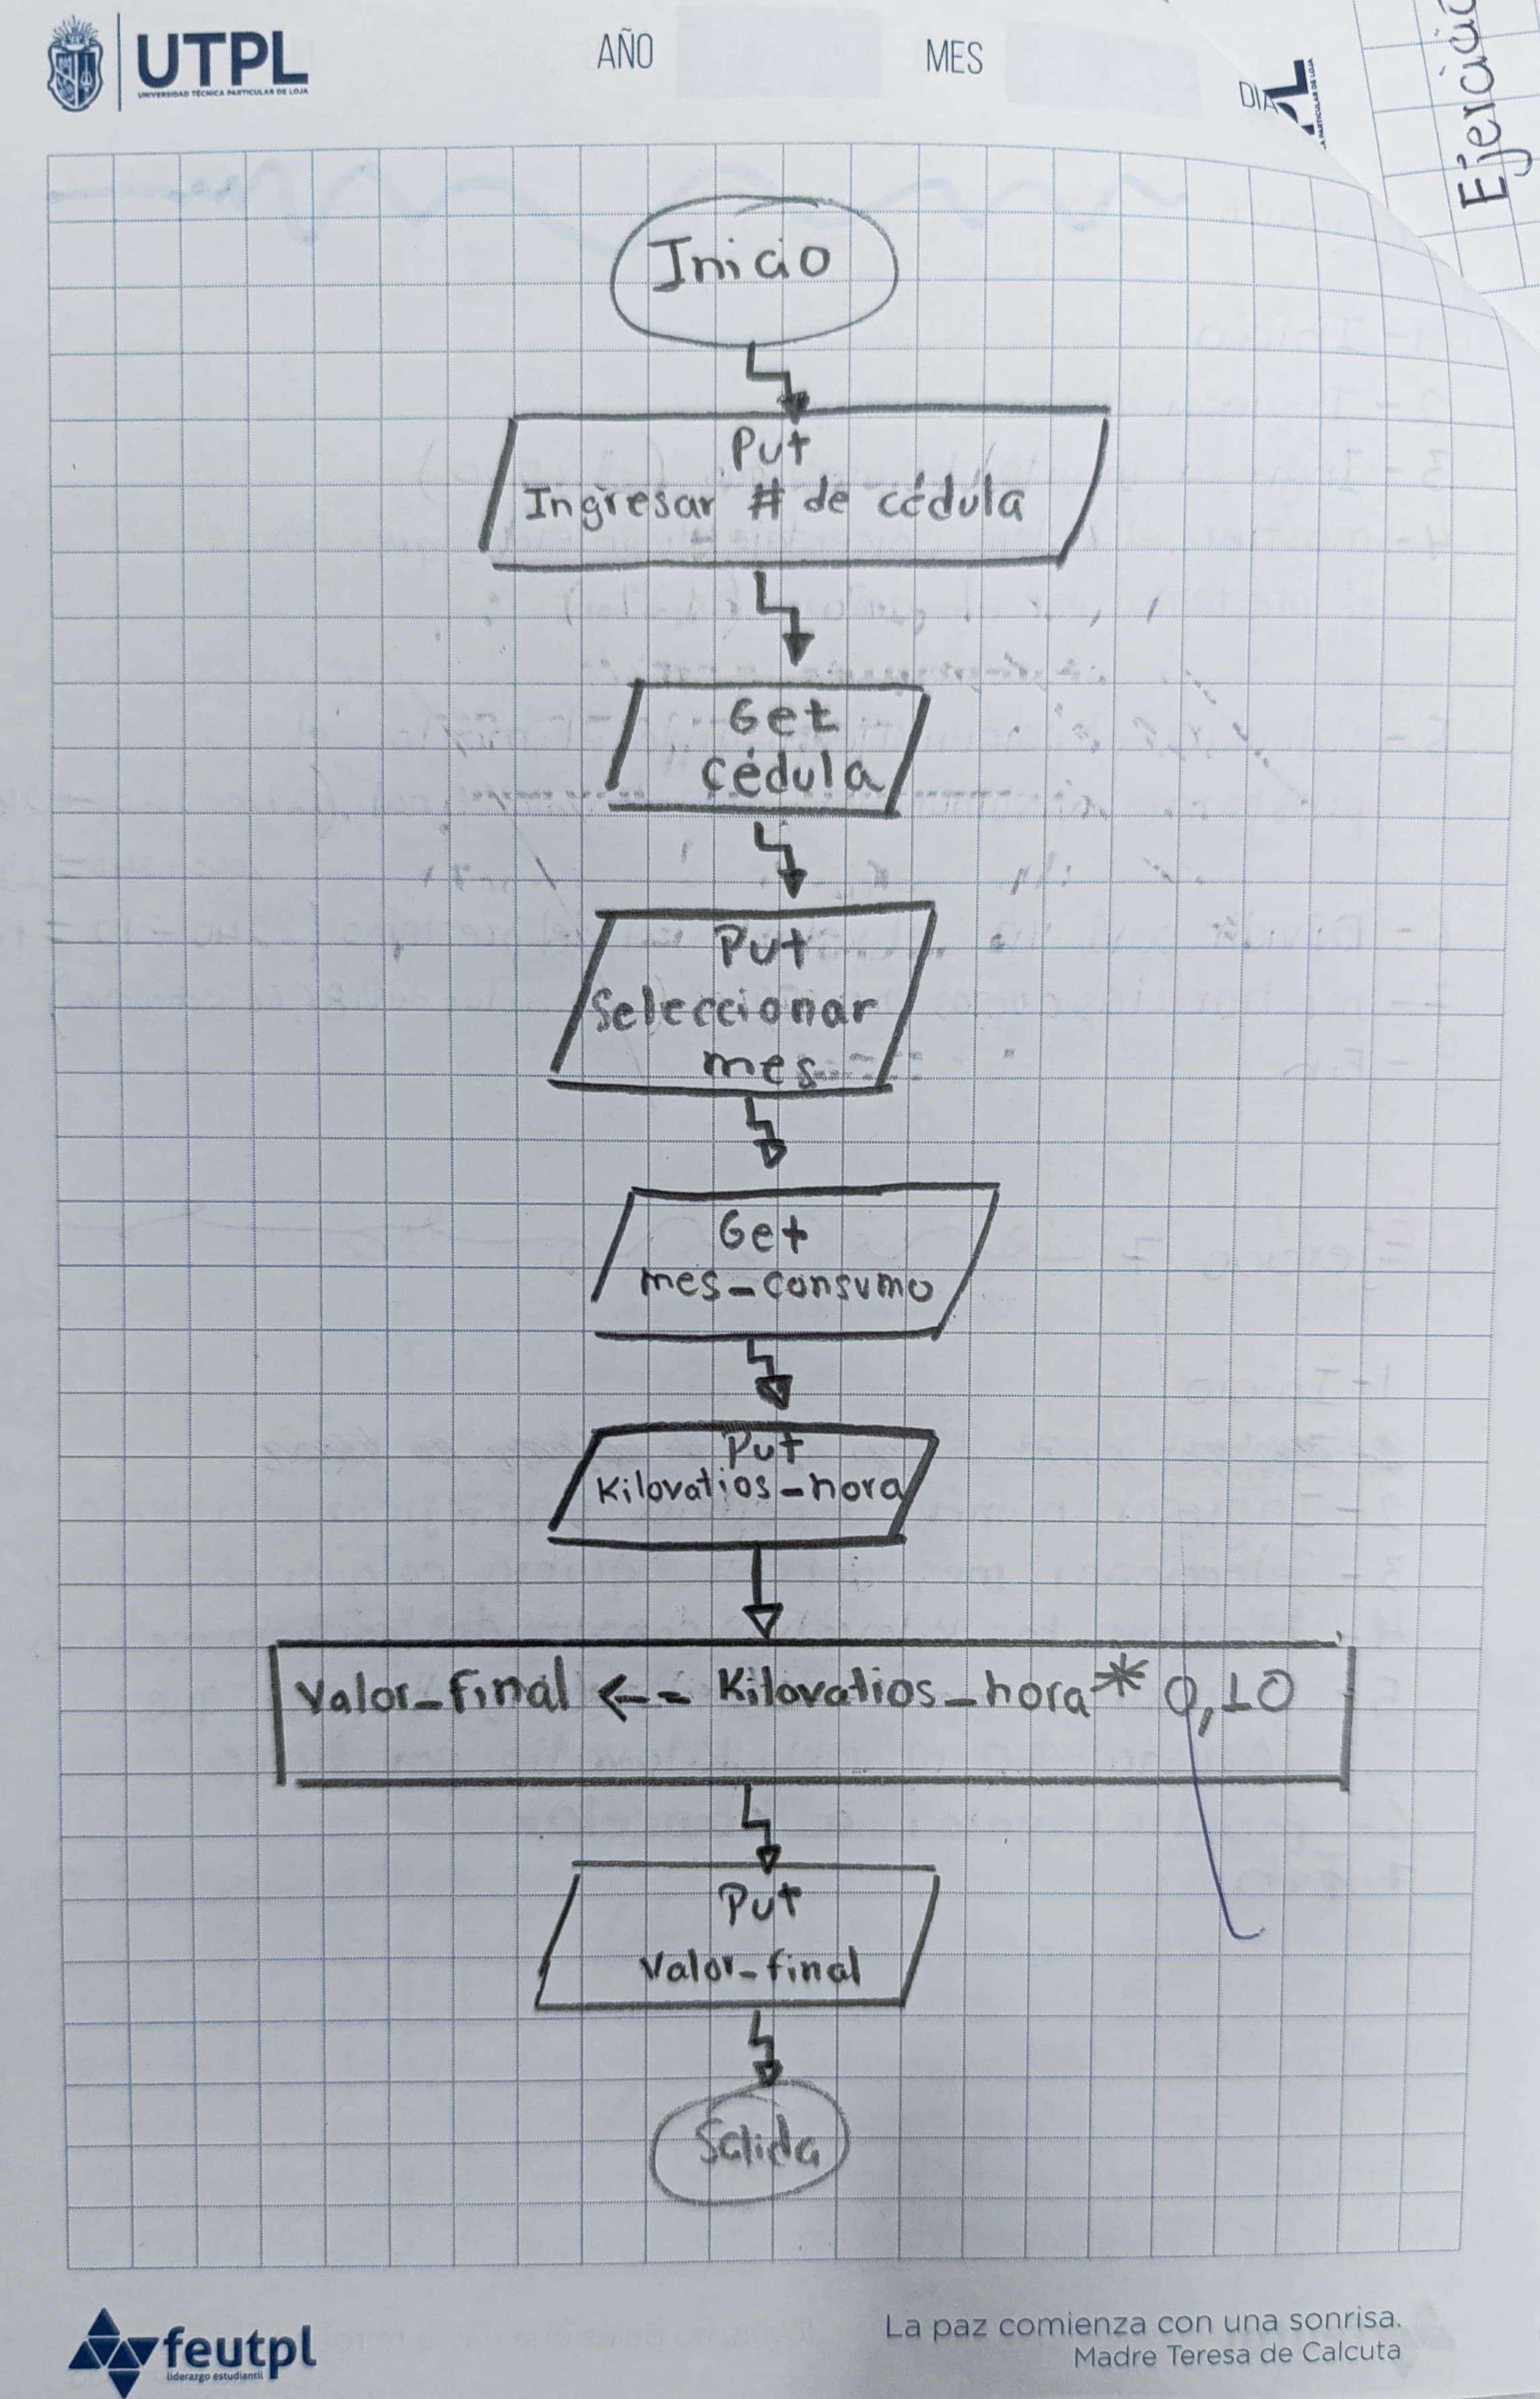 UTPL
UNIVERSIDAD TÉCNICA PARTICULAR DE LOJA
AÑO
MES
DIA
Inicio
Put
Ingresar # de cédula
Get
cédula
Put
Seleccionar
mes
Get
mes_consumo
Put
Kilovatios_hora
Valor_final <-- Kilovatios_hora * 0,10
Put
Valor_final
Salida
feutpl
liderazgo estudiantil
La paz comienza con una sonrisa.
Madre Teresa de Calcuta